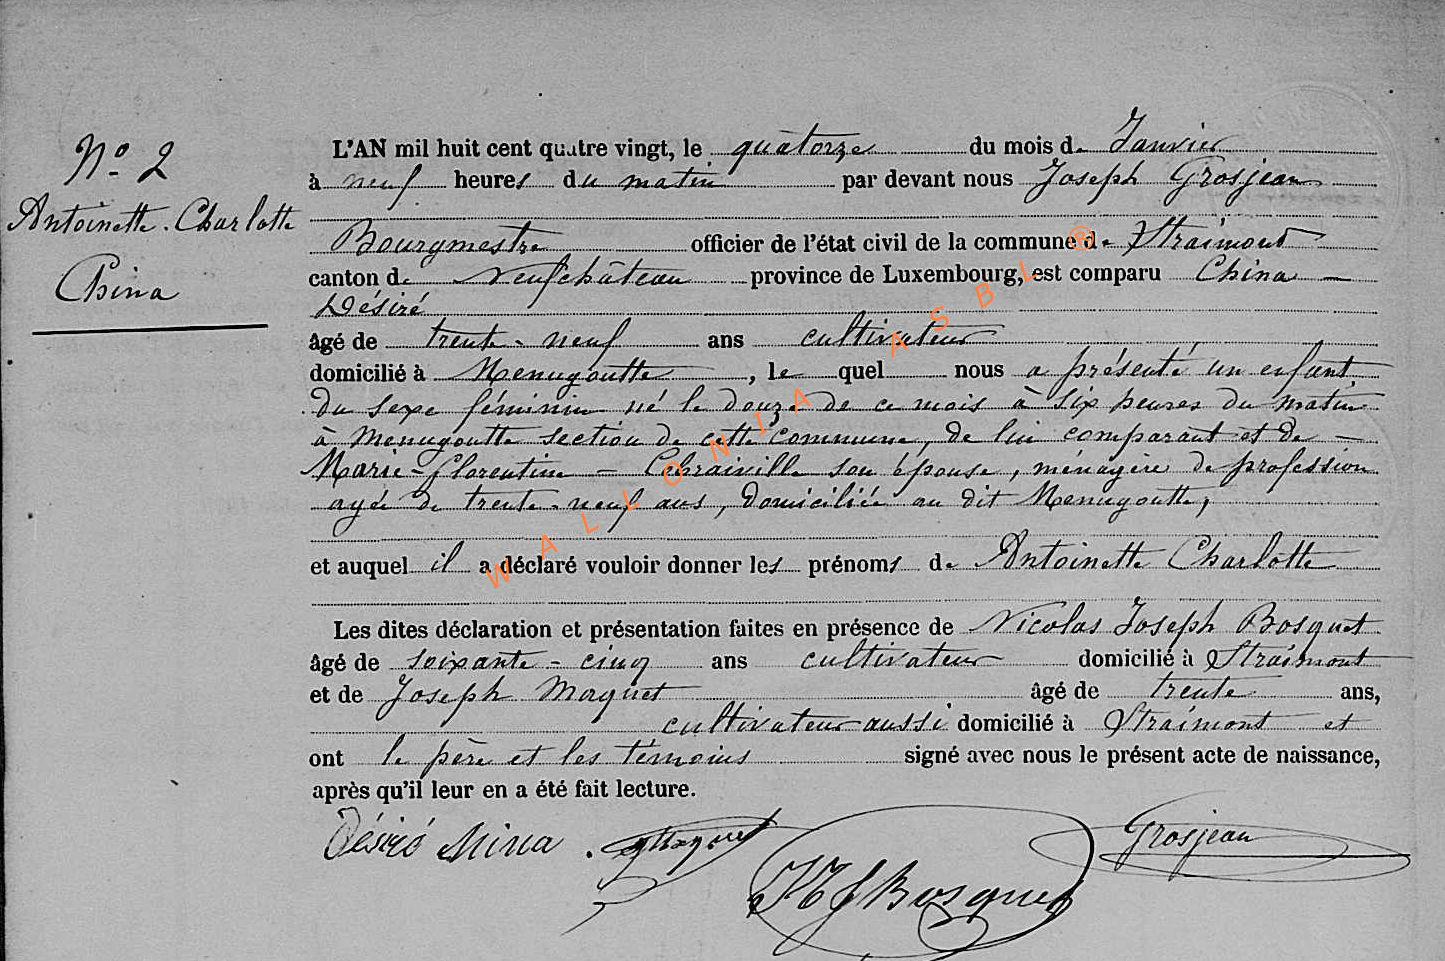 Nº 2
Antoinette-Charlotte
China
L'AN mil huit cent quatre vingt, le quatorze du mois de Janvier
à neuf heures du matin par devant nous Joseph Grosjean
Bourgmestre officier de l'état civil de la commune de Straimont
canton de Neufchâteau province de Luxembourg, est comparu China —
Désiré
âgé de trente-neuf ans cultivateur
domicilié à Menugoutte, le quel nous a présenté un enfant
du sexe féminin né le douze de ce mois à six heures du matin
à Menugoutte section de cette commune, de lui comparant et de —
Marie-Florentine — son épouse, ménagère de profession
agée de trente-neuf ans, domiciliée au dit Menugoutte,
et auquel il a déclaré vouloir donner les prénoms de Antoinette Charlotte
Les dites déclaration et présentation faites en présence de Nicolas Joseph Bosquet
âgé de soixante-cinq ans cultivateur domicilié à Straimont
et de Joseph Maquet âgé de trente ans,
cultivateur aussi domicilié à Straimont et
ont le père et les témoins signé avec nous le présent acte de naissance,
après qu'il leur en a été fait lecture.
Désiré China. JMaquet Grosjean
Bosquet
WALLONIA ASBL ®